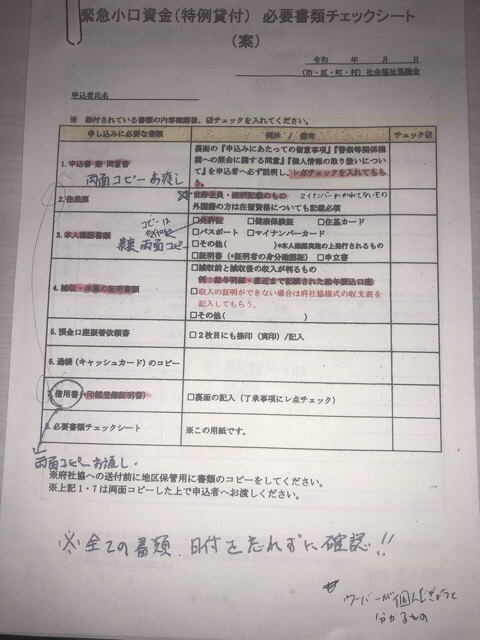 緊急小口資金(特例貸付) 必要書類チェックシート
(案)
令和 年 月 日
(市・区・町・村)社会福祉協議会
申込者氏名
※ 添付されている書類の内容確認後、☑チェックを入れてください。
申し込みに必要な書類 例示 / 備考 チェック☑
1. 申込書 兼 同意書
両面コピーお渡し
裏面の『申込みにあたっての留意事項』『警察等関係機
関への照会に関する同意』『個人情報の取り扱いについ
て』を申込者へ必ず説明し、レ点チェックを入れてもら
う。
2. 住民票
☆世帯全員・続柄記載のもの マイナンバーかかれてないもの
外国籍の方は在留資格についても記載必須
3. 本人確認書類
コピーは
両面コピー
□免許証 □健康保険証 □住基カード
□パスポート □マイナンバーカード
□その他( )*本人確認実施の上発行されるもの
□証明書(+証明者の身分確認証) □申立書
4. 減収・休業の証明書類
□減収前と減収後の収入が判るもの
例:給与明細・直近まで記帳された給与振込口座
□収入の証明ができない場合は府社協様式の収支表を
記入してもらう。
□その他( )
5. 預金口座振替依頼書 □2枚目にも捺印(実印)/記入
6. 通帳(キャッシュカード)のコピー
7. 借用書(+印鑑登録証明書) □裏面の記入(了承事項にレ点チェック)
8. 必要書類チェックシート ※この用紙です。
両面コピーお渡し。
※府社協への送付前に地区保管用に書類のコピーをしてください。
※上記1・7は両面コピーした上で申込者へお渡しください。
※全ての書類、日付を忘れずに確認!!
ウーバーが個人じぎょうと
分かるもの